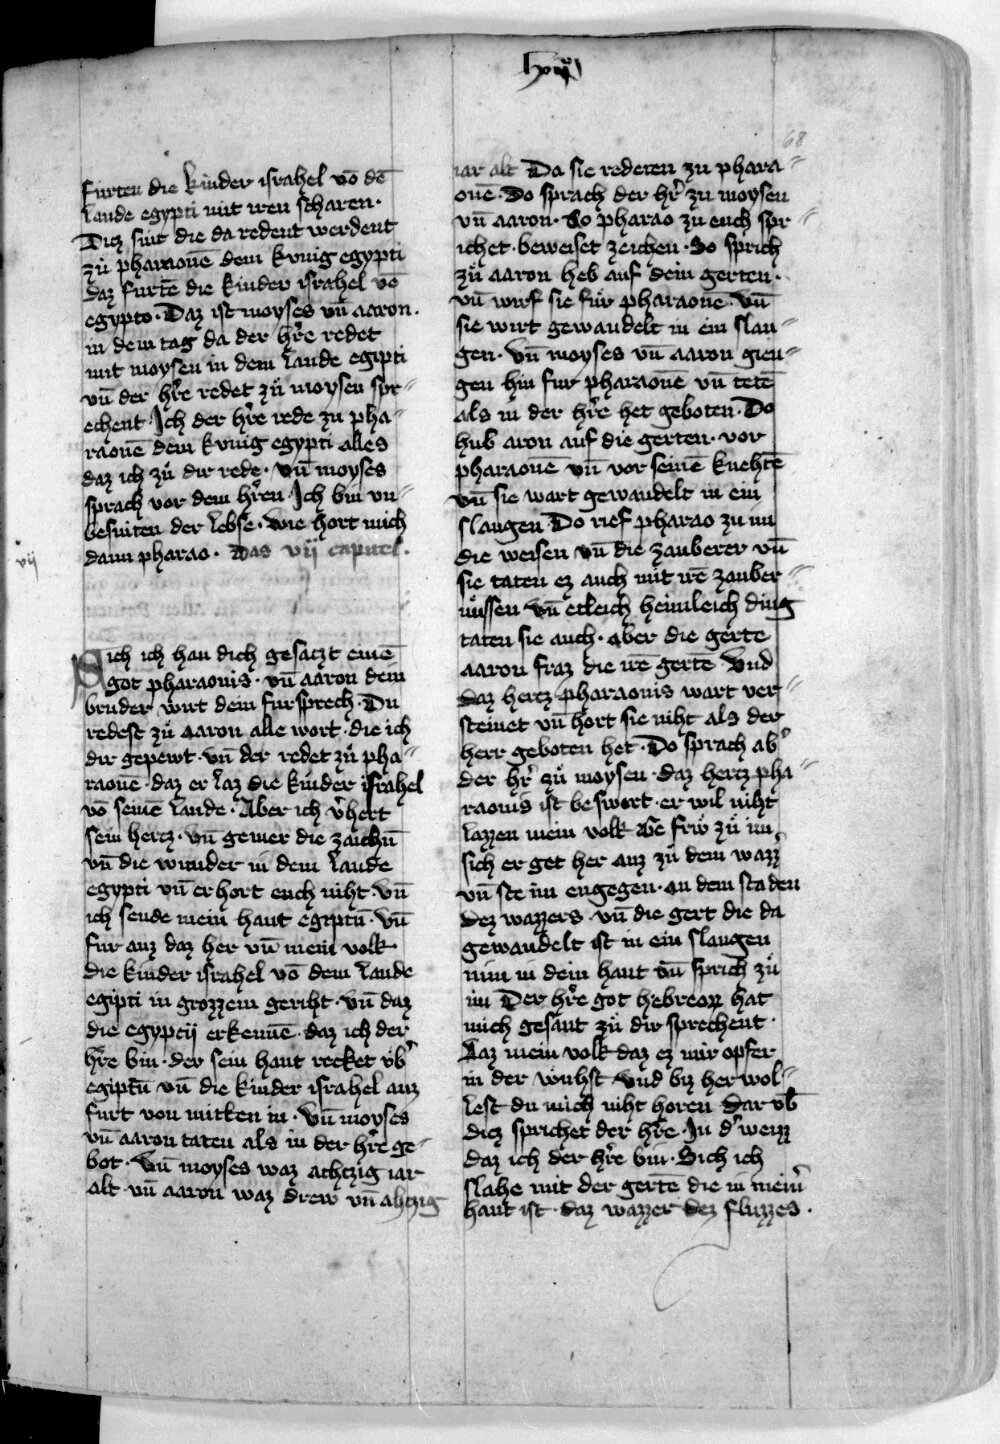 lxvij
68
furten die kinder israhel vō dē
lande egypti mit iren scharen·
Diez sint die da redent werdent
zů pharaouē dem kvnig egypti
daz furtē die kinder israhel vō
egypto· Daz ist moyses vn̄ aaron·
in dem tag da der hr̄e redet
mit moysen in dem lande egipti
vn̄ der hr̄e redet zů moysen spr⸗
echent Ich der hr̄e rede zu pha⸗
raouē dem kvnig egypti alles
daz ich zů dir rede· vn̄ moyses
sprach vor dem hr̄en· Ich bin vn⸗
besniten der lebse· wie hort mich
dann pharao· Das vij capitel·
vij
Sich ich han dich gesaczt einē
got pharaonis· vn̄ aaron dein
bruder wirt dein fursprech· Du
redest zů aaron alle wort· die ich
dir gepewt· vn̄ der redet zů pha⸗
raonē· daz er laz die kinder israhel
vō seinē lande· Aber ich v̉hert
sein hertz· vn̄ gemer die zaichn̄
vn̄ die wunder in dem lande
egypti vn̄ er hort euch niht· vn̄
ich sende mein hant egiptū· vn̄
fur auz daz her vn̄ mein volk
die kinder israhel vō dem lande
egipti in grozzem geriht· vn̄ daz
die egypcij erkennē· daz ich der
hr̄e bin· der sein hant recket vb̉
egiptū vn̄ die kinder israhel auz
furt von mitten in· vn̄ moyses
vn̄ aaron taten als in der hr̄e ge⸗
bot· vn̄ moyses waz achtzig iar
alt· vn̄ aaron waz drew vn̄ ahtzig
iar alt Da sie redeten zu phara⸗
onē· Do sprach der hr̉ zu moysen
vn̄ aaron· So pharao zu euch spr⸗
ichet· beweiset zeichen· So sprich
zů aaron heb auf dein gerten·
vn̄ wirf sie fůr pharaonē· vn̄
sie wirt gewandelt in ein slan⸗
gen· vn̄ moyses vn̄ aaron gien⸗
gen hin fur pharaonē vn̄ tetē
als in der hr̄e het geboten· Do
hub aron auf die gerten· vor
pharaonē vn̄ vor seinē knehtē
vn̄ sie wart gewandelt in ein
slangen Do rief pharao zu im
die weisen vn̄ die zauberer vn̄
sie taten ez auch mit irē zauber⸗
nůssen vn̄ etleich heimleich ding
taten sie auch· aber die gerte
aaron fraz die irē gertē vnd
daz hertz pharaonis wart ver⸗
steinet vn̄ hort sie niht als der
herr geboten het· Do sprach ab̉
der hr̉ zů moysen· daz hertz pha⸗
raonis ist beswert· er wil niht
lazzen mein volk Ge frů zů im
sich er get her auz zů dem wazz̉
vn̄ ste im engegen· an dem staden
dez wazzers· vn̄ die gert die da
gewandelt ist in ein slangen
nim in dein hant vn̄ sprich zů
im Der hr̄e got hebreoꝝ hat
mich gesant zů dir sprechent·
Laz mein volk daz ez mir opfer
in der wůhst vnd biz her wol⸗
lest du mich niht horen Dar vb̉
diez sprichet der hr̄e· In d̉ weizz
daz ich der hr̄e bin· Sich ich
slahe mit der gerte die in mein̉
hant ist· daz wazzer dez fluzzes·